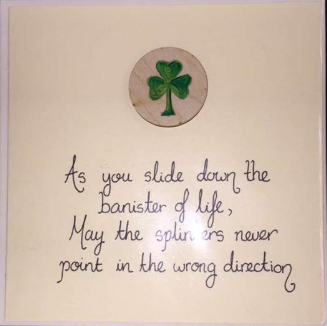 As you slide down the
banister of life,
May the splinters never
point in the wrong direction